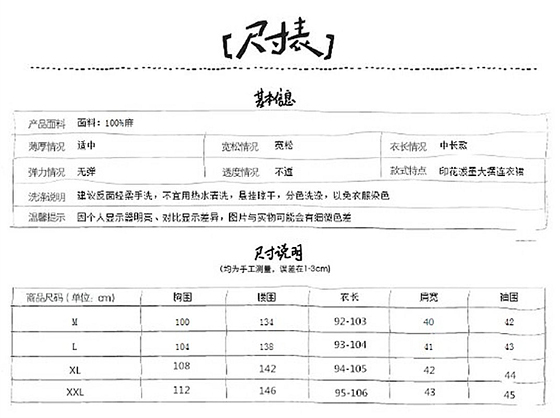 [尺寸表]
基本信息
产品面料 面料：100%麻
薄厚情况 适中 宽松情况 宽松 衣长情况 中长款
弹力情况 无弹 透度情况 不透 款式特点 印花泼墨大摆连衣裙
洗涤说明 建议反面轻柔手洗，不宜用热水清洗，悬挂晾干，分色洗涤，以免衣服染色
温馨提示 因个人显示器明亮、对比显示差异，图片与实物可能会有细微色差
尺寸说明
（均为手工测量，误差在1-3cm）
商品尺码（单位：cm） 胸围 腰围 衣长 肩宽 袖围
M 100 134 92-103 40 42
L 104 138 93-104 41 43
XL 108 142 94-105 42 44
XXL 112 146 95-106 43 45